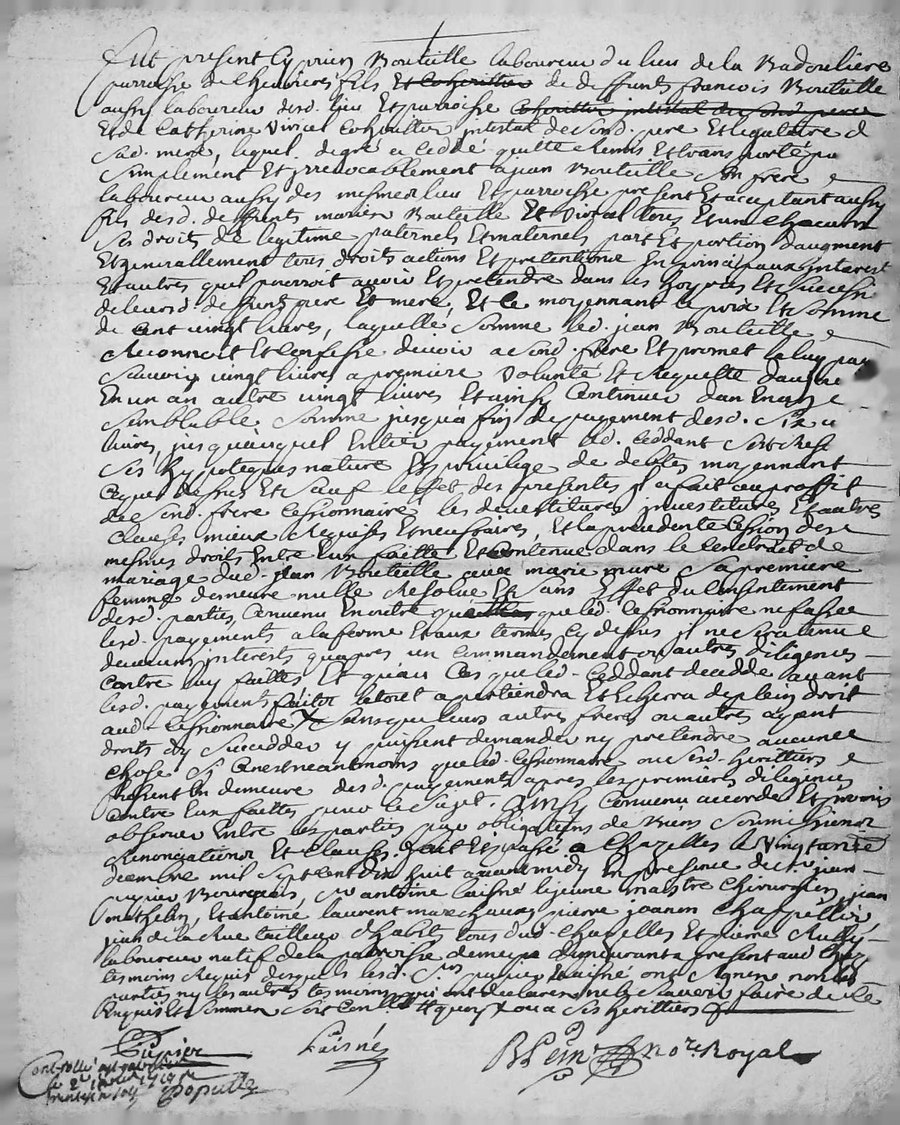 fut present Cyprien Bouteille laboureur du lieu de la Badouliere
parroisse de Chevrieres fils Et coheritier de deffunts francois Bouteille
aussy laboureur desd. lieu Et parroisse coheritier intestat du sond. pere
Et de Catherine Virical Coheritier intestat de sond. pere Et legataire de
Sad. mere, lequel degré a Ceddé quitte Remis Et transporté pu
Simplement Et irrevocablement a jean Bouteille Son frere
laboureur aussy des mesmes lieu Et parroisse present Et acceptant aussy
fils desd. deffunts mariés Bouteille Et Virical tous Et un Chacuns
Ses droits de legitime paternels Et maternels part Et portion daugment
Et generallement tous droits actions Et pretentions En principaux Interest
Et autres quil pourroit avoir Et pretendre dans les hoyries Et Success
de leursd. deffunts pere Et mere, Et Ce moyennant le prix Et Somme
de Cent vingt livres, laquelle Somme led. jean Bouteille
Reconnoit Et Confesse devoir a sond. frere Et promet la luy pay
Scavoir vingt livres a premiere Volonté Et Requette dauj
En un an autre vingt livres Et ainsy Continuer dan En an
Semblable Somme jusqu'a fin de payement desd. Six
livres, jusquauquel Entier payement led. Ceddant Sest Res
Ses hypoteques nature Et privilege de debtes moyennant
Ce que dessus Et Sauf leffet des presentes il a fait au proffit
de Sond. frere Cessionnaire les devestitures investitures Et autres
Clauses mieux Requises Et necessaires, Et la precedente Cession des
mesmes droits Entre Eux faitte Et Contenue dans le Contract de
mariage dud. jean Bouteille avec marie mure Sa premiere
femme demeure nulle Resolue Et Sans Effet du Consentement
desd. parties, Convenu En outre que led. Cessionnaire ne fasse
lesd. payements a la forme Et aux termes Cy dessus il ne sera tenu
daucuns interests quapres un Commandement ou autres diligences
Contre luy faittes Et quau Cas que led. Ceddant decedde avant
lesd. payements faits le tout apartiendra Et Echerra de plein droit
aud. Cessionnaire Sans que leurs autres freres ou autres ayant
droits dy Succedder y puissent demander ny pretendre aucune
Chose Si Ce nest neantmoins que led. Cessionnaire ou Sesd. heritiers
fussent En demeure desd. payements apres les premieres diligences
Contre Eux faittes pour Ce Sujet. Ainsy Convenu accordé Et promis
observer Entre les parties par obligations de Biens Soumissions
Renonciations Et Clauses. fait Et passé a Chazelles le Vingt
decembre mil Sept Cent dix huit avant midy En presence de Sr. jean
pupier Bourgeois, Sr. antoine laisné lejeune maistre Chirurgien, jean
mathelin, Et antoine laurent mareschaux, pierre joanin Chappellier
jean de la Rue tailleur dhabits tous dud. Chazelles Et pierre
laboureur natif de la parroisse de meys demeurants present aud. Chaz.
tesmoins Requis desquels lesd. Srs pupier Et laisné ont Signé non les
parties ny les autres tesmoins qui ont declaré ne le Scavoir faire de Ce
Enquis Et Sommés Soit Conll. Et
Pupier
Laisné
nore. Royal
Controllé